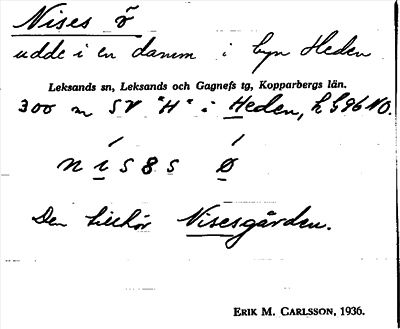 Nises ö
udde i en damm i byn Heden
Leksands sn, Leksands och Gagnefs tg, Kopparbergs län.
300 m SV "H" i Heden, L 596 NO.
Den tillhör Nisesgården.
ERIK M. CARLSSON, 1936.